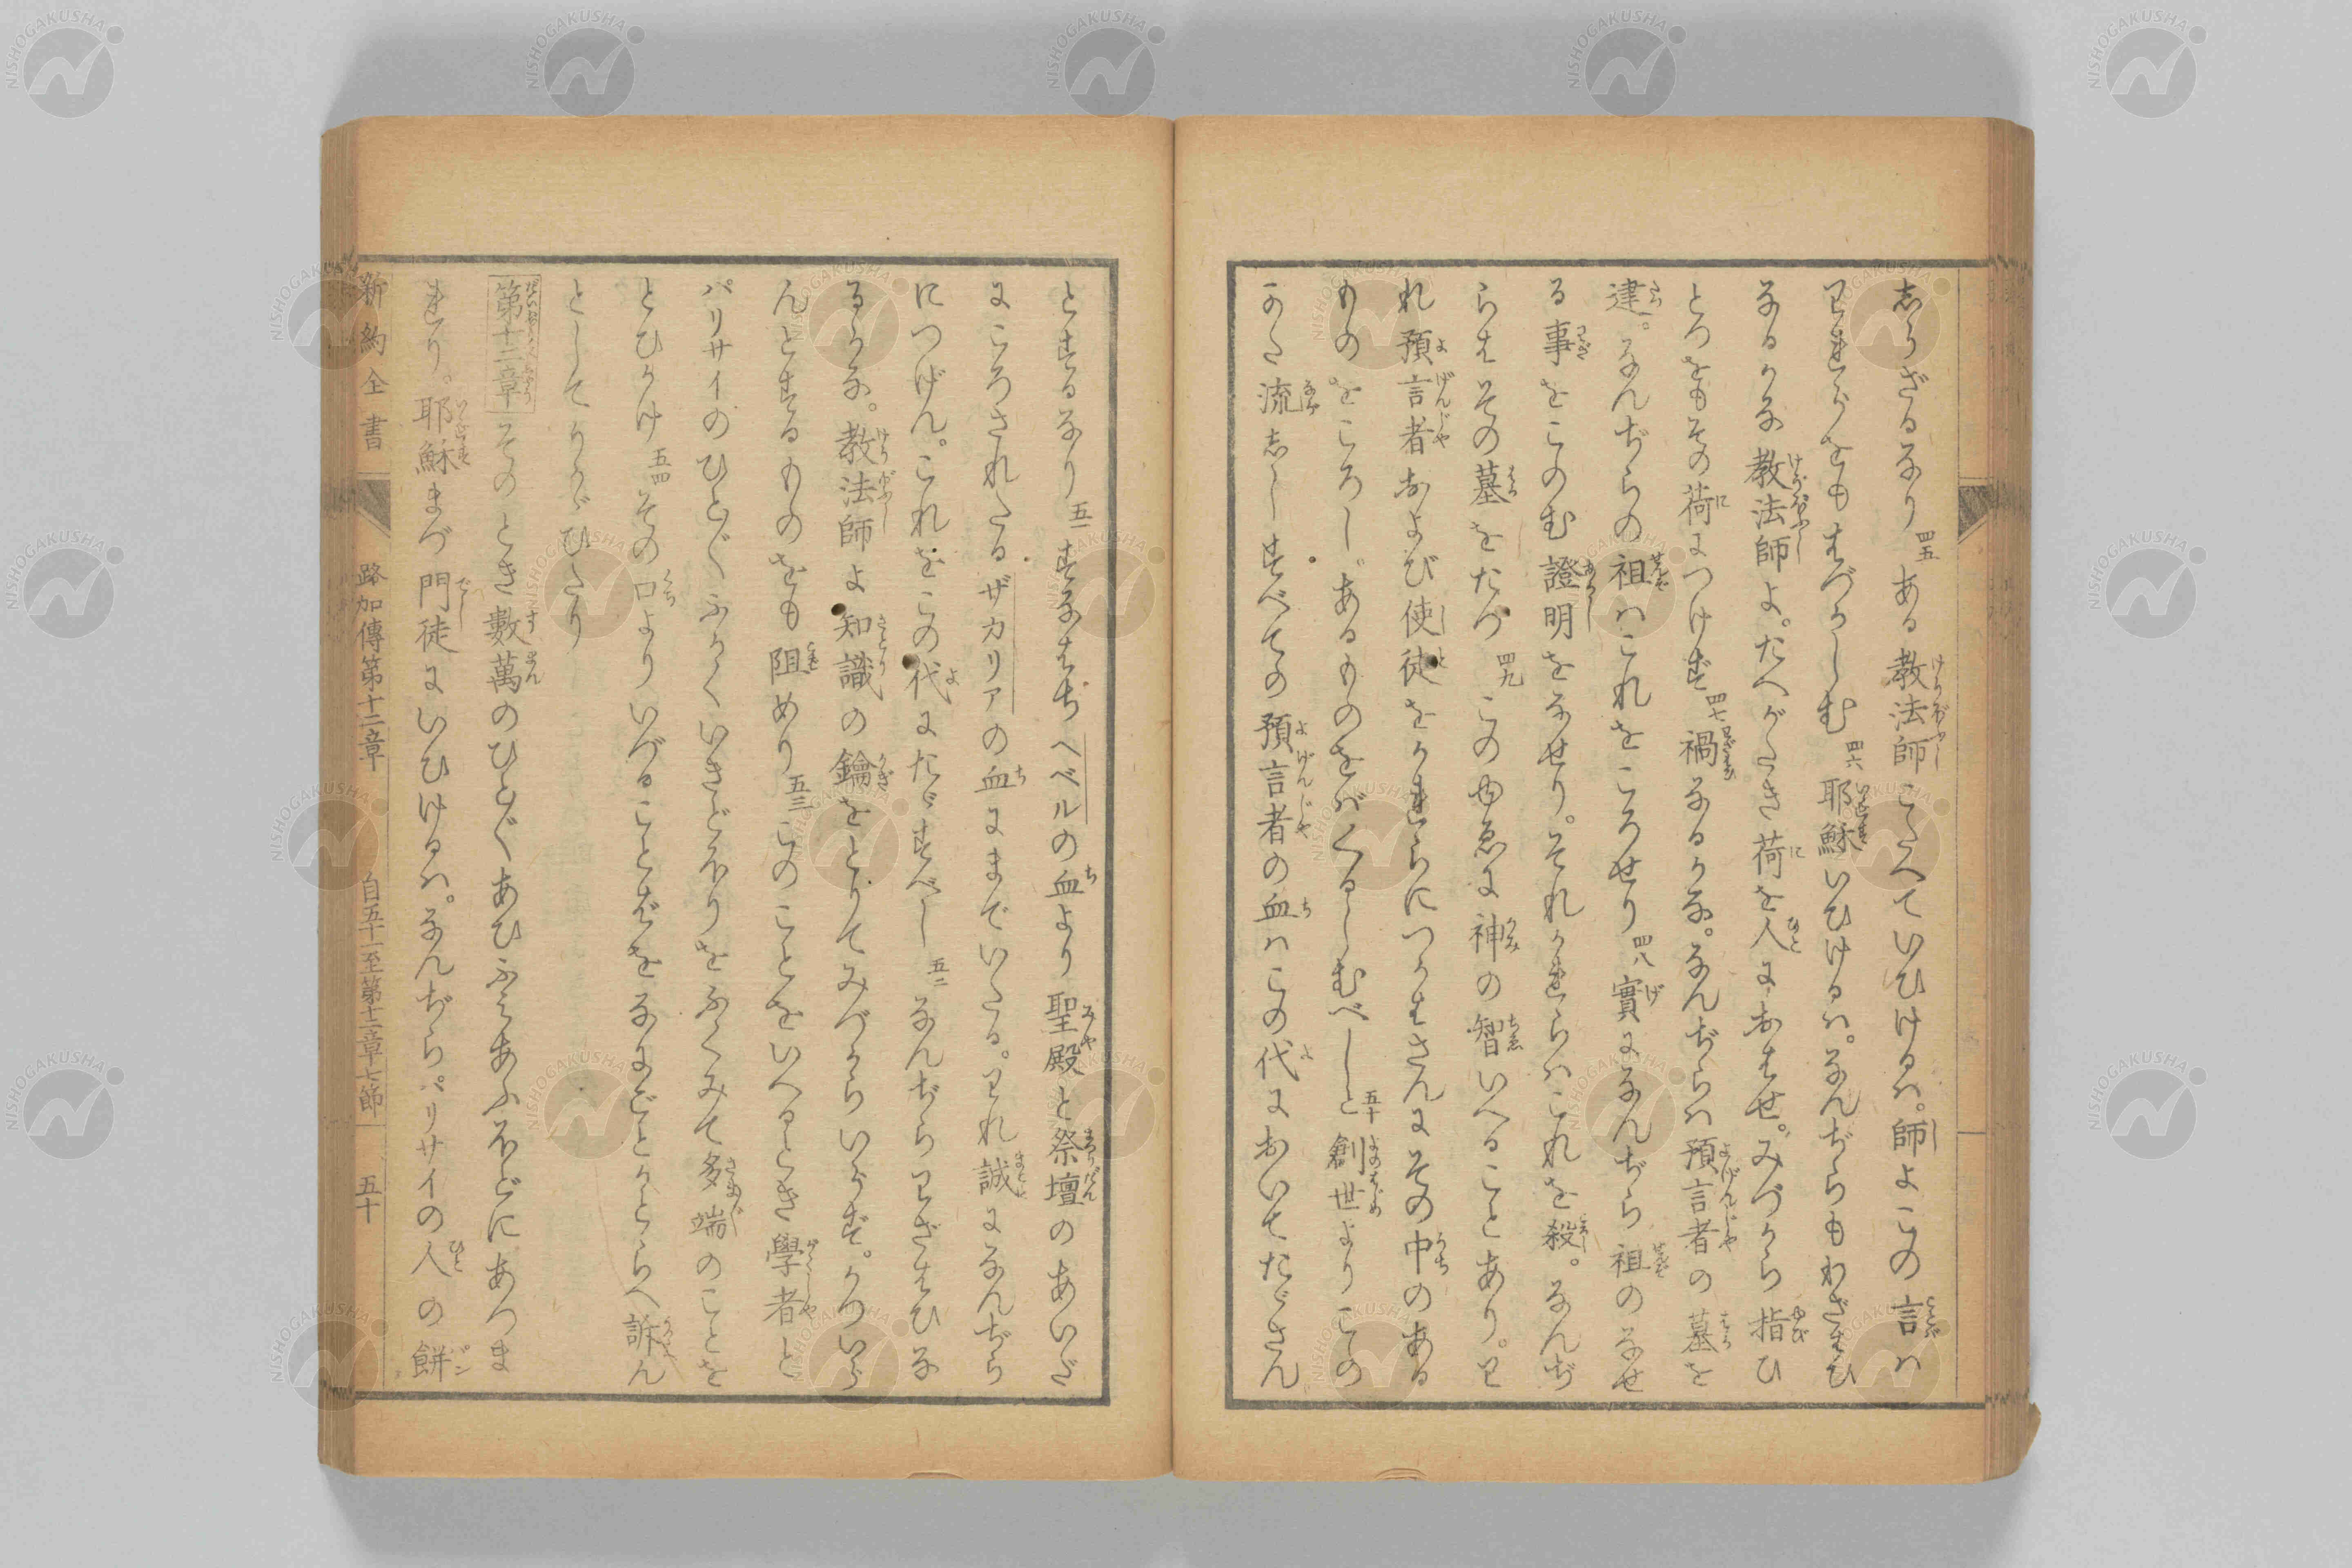 志らざるなり 四五 ある教法師こたへていひけるハ。師よこの言ハ
われらをもはづかしむ 四六 耶穌いひけるハ。なんぢらもわざはひ
なるかな教法師よ。たへがたき荷を人におはせ。みづから指ひ
とつをもその荷につけず 四七 禍なるかな。なんぢらハ預言者の墓を
建。なんぢらの祖ハこれをころせり 四八 實になんぢら祖のなせ
る事をこのむ證明をなせり。それかれらハこれを殺。なんぢ
らはその墓をたつ 四九 このゆゑに神の智いへることあり。わ
れ預言者および使徒をかれらにつかはさんにその中のある
ものをころし。あるものをバくるしむべしと 五十 創世よりこの
かた流しゝすべての預言者の血ハこの代においてたゞさん
とするなり 五一 すなはちヘベルの血より聖殿と祭壇のあいだ
にころされたるザカリアの血にまでいたる。われ誠になんぢら
につげん。これをこの代にたゞすべし 五二 なんぢらわざはひな
るかな。教法師よ知識の鑰をとりてみづからいらず。かついら
んとするものをも阻めり 五三 このことをいへるとき學者と
パリサイのひと〴〵ふかくいきどほりをふくみて多端のことを
とひかけ 五四 その口よりいづることばをなにごとかとらへ訴ん
としてうかゞひたり
第十二章 そのとき數萬のひと〴〵あひふみあふほどにあつま
れり。耶穌まづ門徒にいひけるハ。なんぢらパリサイの人の餅
新約全書 路加傳第十二章 自五十一至第十二章七節 五十